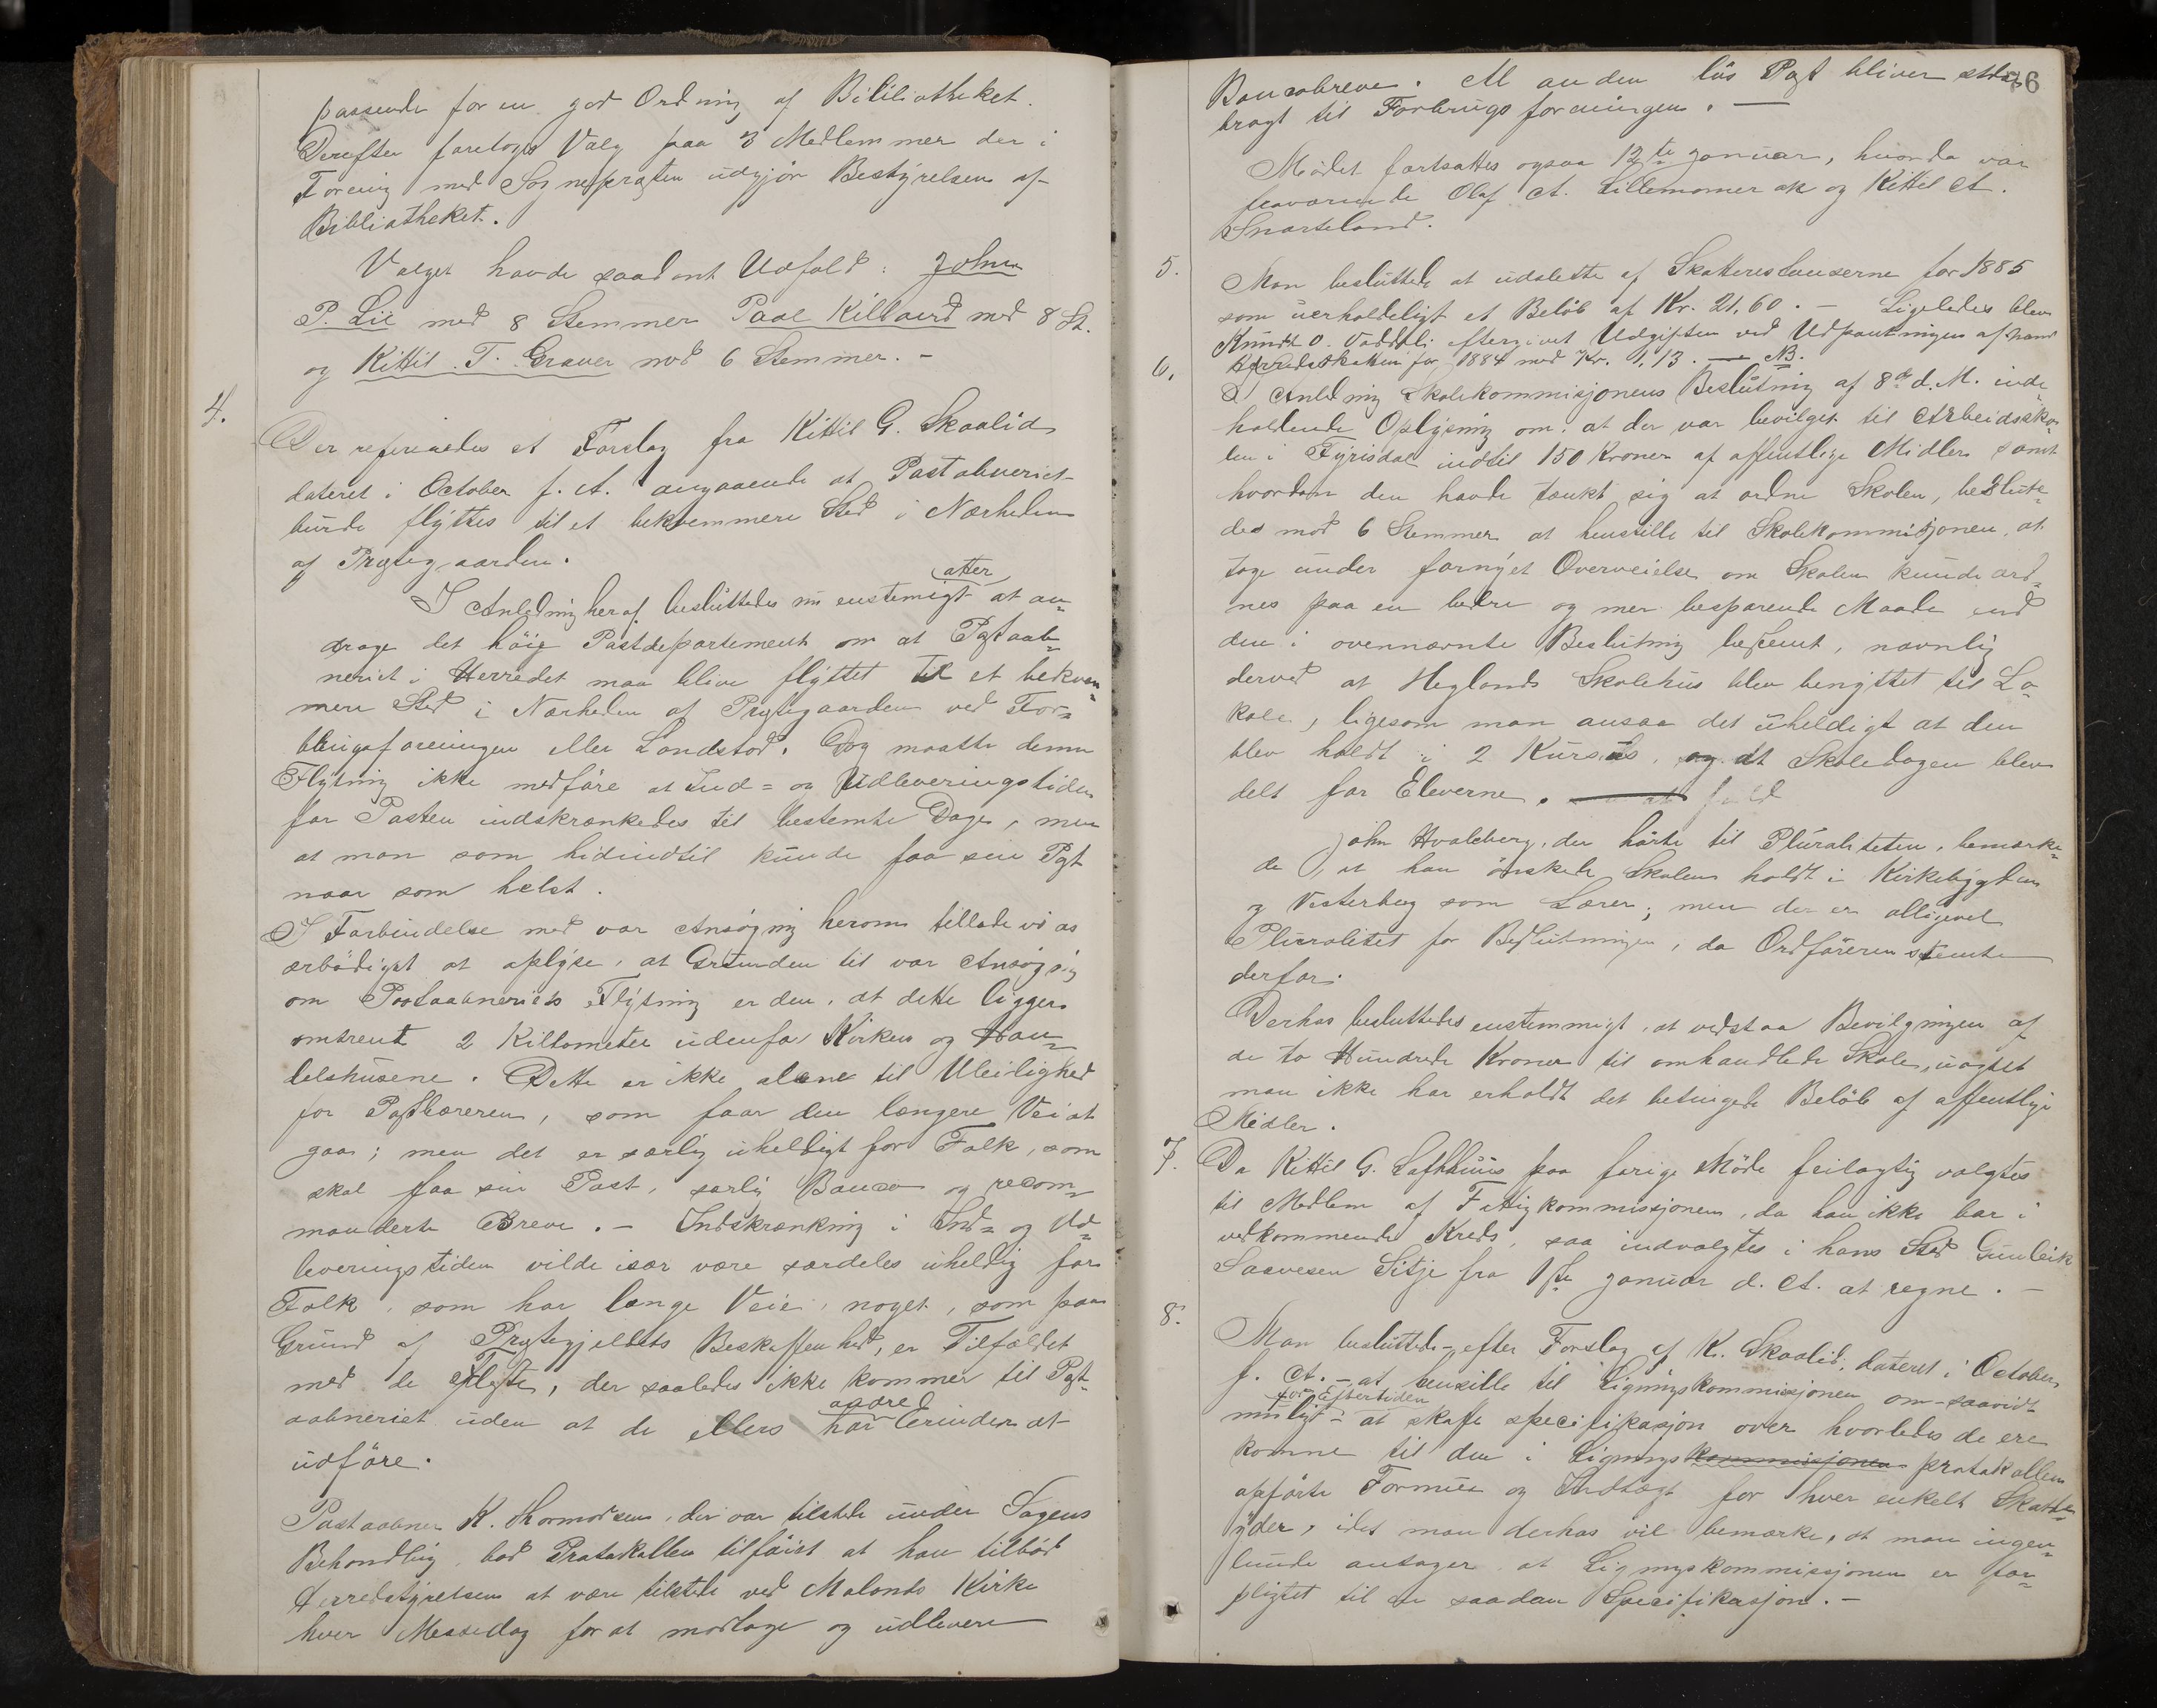 passende for en god Ordning af Bibliotheket.
Derefter foretoges Valg paa 3 Medlemmer der i
Forening med Sognepræsten udgjør Bestyrelsen af
Bibliotheket.
Valget havde saadant Udfald: John
P. Lie med 8 Stemmer Paal Killaurd med 8 St.
og Kittil T. Graver med 6 Stemmer. –
4.
Der refereredes et Forslag fra Kittil G. Skaalid
dateret i October f. A. angaaende at Postabneriet
burde flyttes til et bekvemmere Sted i Nærheden
af Prestegaarden.
atter
I Anledning heraf besluttedes nu enstemigt at an=
drage det høie Postdepartement om at Postaab=
neriet i Herredet maa blive flyttet til et bekvem=
mere Sted i Nærheden af Prestegaarden ved For=
brugsforeningen eller Landstad. Dog maatte denne
Flytning ikke medføre at Ind= og Udleveringstiden
for Posten indskrænkedes til bestemte Dage, men
at man som hidindtil kunde faa sin Post
naar som helst.
I Forbindelse med vor Ansøgning herom tillade vi os
ærbødigst at oplyse, at Grunden til vor Ansøgning
om Postaabneriets Flytning er den, at dette ligger
omtrent 2 Killometer udenfor Kirken og Han=
delshusene. Dette er ikke alene til Uleilighed
for Postbæreren, som faar den længere Vei at
gaa; men det er særlig uheldigt for Folk, som
skal faa sin Post, særlig Banco og recom=
manderte Breve. – Indskrænkning i Ind= og Ud=
leveringstiden vilde især være særdeles uheldig for
Folk, som har lange Veie, noget, som paa
Grund af Prestegjeldets Beskaffenhed, er Tilfældet
med de Fleste, der saaledes ikke kommer til Post=
andre
aabneriet uden at de ellers har Ærinder at
udføre.
Postaabner K. Thormodsen, der var tilstede under Sagens
Behandling, bad Protokollen tilføiet at han tilbød
Herredstyrelsen at være tilstede ved Molands Kirke
hver Messedag for at modtage og udlevere
76
Bancobreve. Al anden løs Post bliver strax
bragt til Forbrugsforeningen. —
Mødet fortsattes ogsaa 12te Januar, hvor da var
fraværende Olaf A. Lillemomerak og Kittil A.
Snarteland.
5.
Man besluttede at udslette af Skatterestanserne for 1885
som uerholdeligt et Beløb af Kr. 21,60. – Ligeledes blev
Knudt O. Vaddeli eftergivet Udgiften ved Udpantningen af hans
Herredsskatten for 1884 med Kr. 1,13. — NB.
6.
I Anledning Skolekommisjonens Beslutning af 8de d. M. inde=
holdende Oplysning om, at der var bevilget til Arbeidssko=
len i Fyrisdal indtil 150 Kroner af offentlige Midler samt
hvordan den havde tænkt sig at ordne Skolen, beslute=
des mod 6 Stemmer at henstille til Skolekommisjonen, at
tage under fornyet Overveielse om Skolen kunde ord=
nes paa en bedre og mer besparende Maade end
den i ovennævnte Beslutning bestemt, navnlig
derved at Heglands Skolehus blev benyttet til Lo=
kale, ligesom man ansaa det uheldigt at den
blev holdt i 2 Kursus, og at Skoledagen blev
delt for Eleverne.
John Hvaleberg, der hørte til Pluraliteten, bemærke=
de, at han ønskede Skolen holdt i Kirkebygden
og Vesterberg som Lærer; men der er alligevel
Pluralitet for Beslutningen, da Ordføreren stemte
derfor.
Derhos besluttedes enstemmigt, at vedstaa Bevilgningen af
de to Hundrede Kroner til omhandlede Skole, uagtet
man ikke har erholdt det betingede Beløb af offentlige
Midler.
7.
Da Kittil G. Lofthuus paa forige Møde feilagtig valgtes
til Medlem af Fattigkommissjonen, da han ikke bor i
vedkommende Kreds, saa indvalgtes i hans Sted Gunleik
Saavesen Sitje fra 1ste Januar d. A. at regne. –
8.
Man besluttede – efter Forslag af K. Skaalid, dateret i October
f. A. – at henstille til Ligningskommissjonen om – saavidt
for Eftertiden
muligt – at skaffe specifikasjon over hvorledes de ere
komne til den i Lignings kommissjonen protokollen
opførte Formue og Indtægt for hver enkelt Skatte=
yder, idet man derhos vil bemærke, at man ingen=
lunde antager, at Ligningskommissjonen er for=
pligtet til en saadan Specifikasjon. –